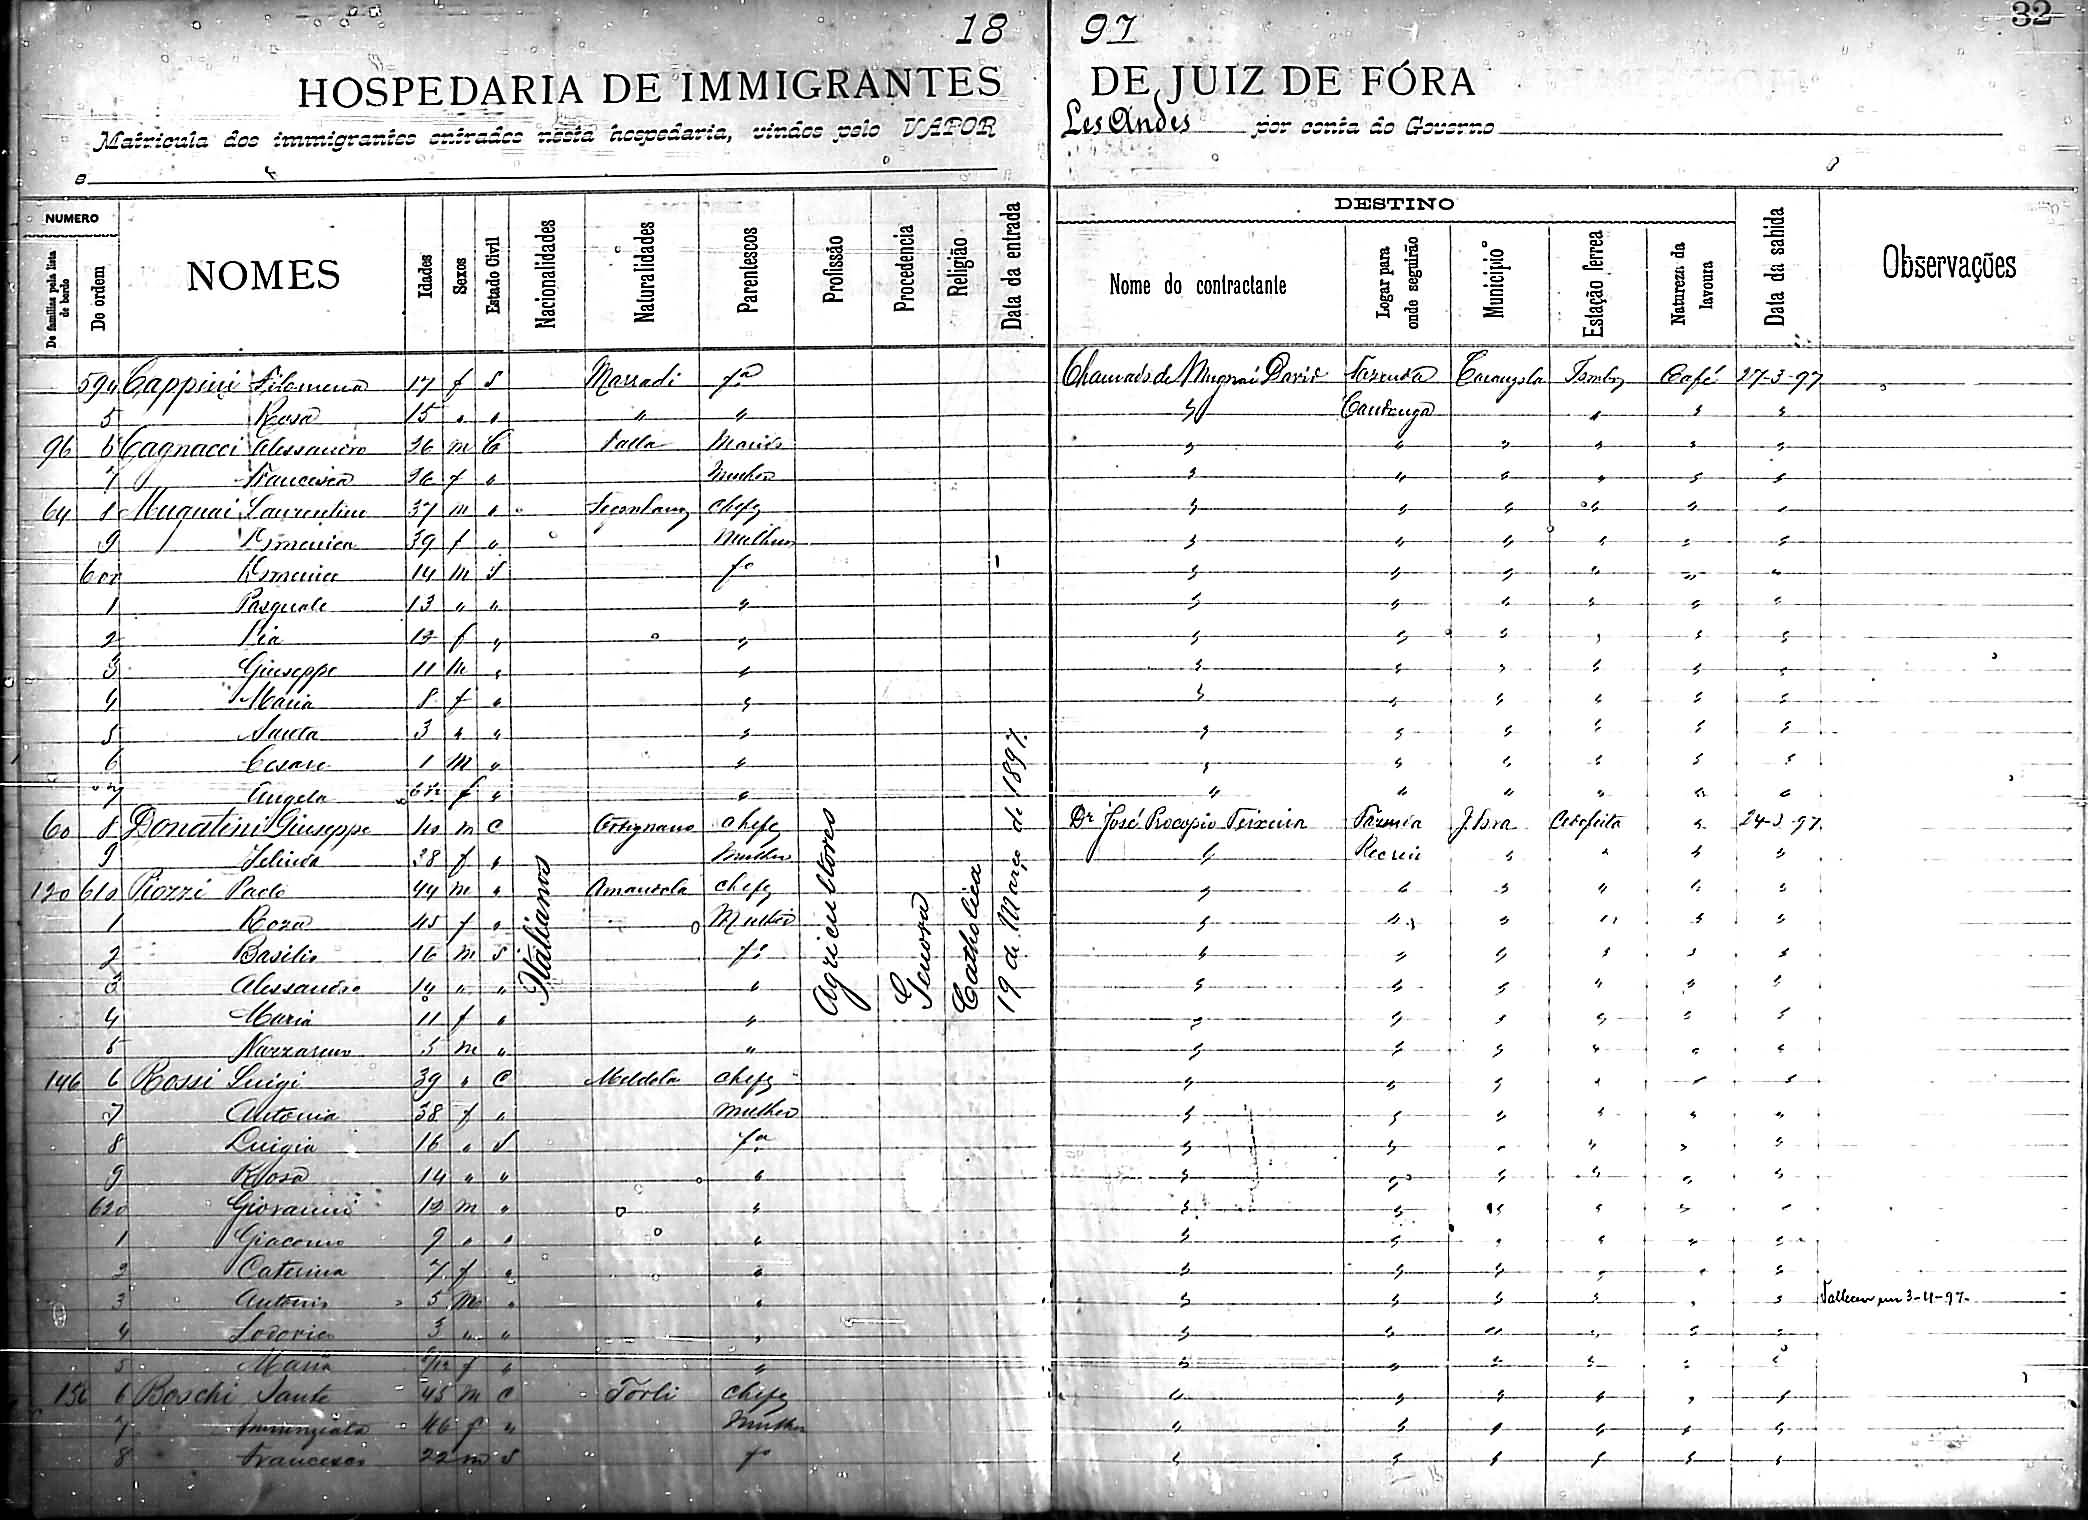 18 97
32
HOSPEDARIA DE IMMIGRANTES DE JUIZ DE FÓRA
Matricula dos immigrantes entrados nesta hospedaria, vindos pelo VAPOR Les Andes por conta do Governo
NUMERO
De familias pela lista de bordo
De ordem
NOMES
Idades
Sexos
Estado Civil
Nacionalidades
Naturalidades
Parentescos
Profissão
Procedencia
Religião
Data da entrada
DESTINO
Nome do contractante
Logar para onde seguirão
Municipio
Estação ferrea
Natureza da lavoura
Data da sahida
Observações
594 Cappini Filomena 17 f S Marradi fa Chamado de Mugnai David Fazenda Carangola Tombos Café 27-3-97
5 Rosa 15 " " " " " " " "
96 6 Cagnacci Alessandro 26 m C Marido " " " " " "
7 Francesca 26 f " Mulher " " " " " "
64 8 Mugnai Laurentino 37 m " Chefe " " " " " "
9 Domenica 39 f " Mulher " " " " " "
600 Domenico 14 m S fo " " " " " "
1 Pasquale 13 " " " " " " " " "
2 Pia 12 f " " " " " " " "
3 Giuseppe 11 m " " " " " " " "
4 Maria 8 f " " " " " " " "
5 Santa 3 " " " " " " " " "
6 Cesare 1 m " " " " " " " "
7 Angela f " " " " " " " "
60 8 Donatini Giuseppe 40 m C Chefe Dr José Procopio Teixeira Fazenda J. Fora Cedofeita " 24-3-97
9 38 f " Mulher " Recreio " " " "
120 610 Piozzi Paolo 44 m " Amandola Chefe " " " " " "
1 Roza 45 f " Mulher " " " " " "
2 Basilio 16 m S fo " " " " " "
3 Alessandro 14 " " " " " " " " "
4 Maria 11 f " " " " " " " "
5 Nazzareno 5 m " " " " " " " "
146 6 Rossi Luigi 39 " C Meldola Chefe " " " " " "
7 Antonia 38 f " Mulher " " " " " "
8 Luigia 16 " S fa " " " " " "
9 Rosa 14 " " " " " " " " "
620 Giovanni 12 m " " " " " " " "
1 Giacomo 9 " " " " " " " " "
2 Caterina 7 f " " " " " " " "
3 Antonio 5 m " " " " " " " " Falleceu em 3-4-97
4 Lodovico 3 " " " " " " " " "
5 Maria f " " " " " " " "
156 6 Boschi Sante 45 m C Forli Chefe " " " " " "
7 Annunziata 46 f " Mulher " " " " " "
8 Francesco 22 m S fo " " " " " "
Italianos
Agricultores
Genova
Catholica
19 de Março de 1897.